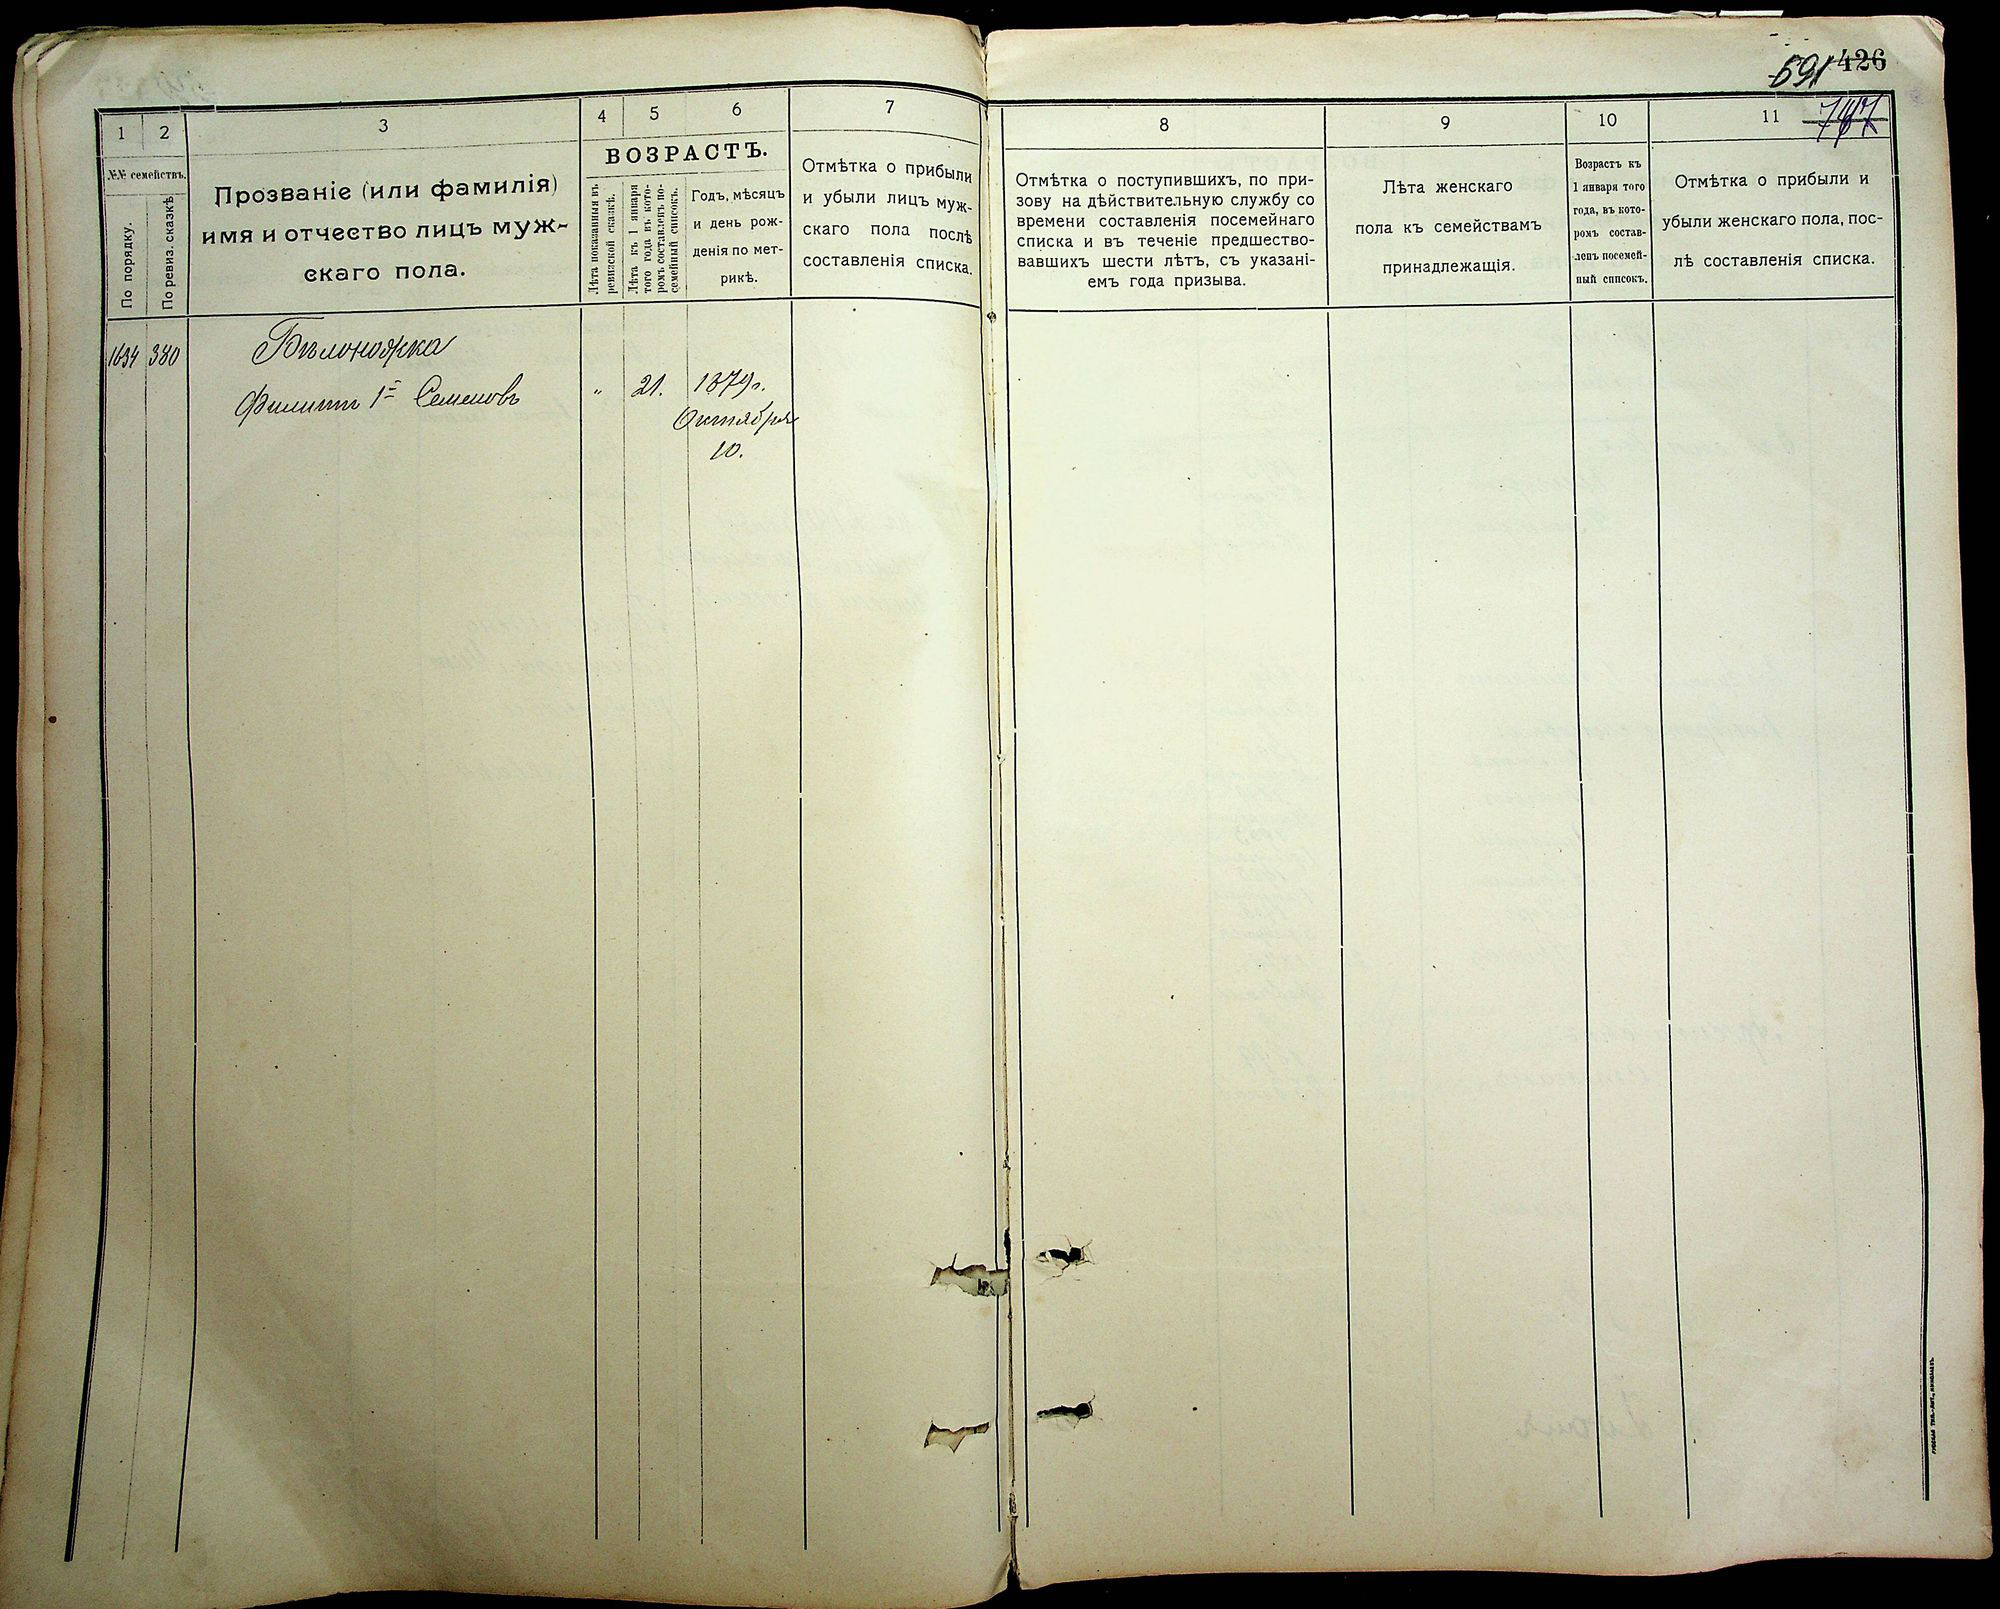 591 426
747
1 2 3 4 5 6 7
№№ семействъ.
По порядку.
По ревиз. сказкѣ
Прозваніе (или фамилія)
имя и отчество лицъ муж-
скаго пола.
ВОЗРАСТЪ.
Лѣта показанныя въ
ревизской сказкѣ.
Лѣта къ 1 января
того года въ кото-
ромъ составленъ по-
семейный списокъ.
Годъ, мѣсяцъ
и день рож-
денія по мет-
рикѣ.
Отмѣтка о прибыли
и убыли лицъ муж-
скаго пола послѣ
составленія списка.
8 9 10 11
Отмѣтка о поступившихъ, по при-
зову на дѣйствительную службу со
времени составленія посемейнаго
списка и въ теченіе предшество-
вавшихъ шести лѣтъ, съ указані-
емъ года призыва.
Лѣта женскаго
пола къ семействамъ
принадлежащія.
Возрастъ къ
1 января того
года, въ кото-
ромъ состав-
ленъ посемей-
ный списокъ.
Отмѣтка о прибыли и
убыли женскаго пола, пос-
лѣ составленія списка.
1634 380 Бѣлоножка
Филиппъ 1й Семеновъ " 21. 1879г.
Октября
10.
РУССКАЯ ТИП.-ЛИТ., НИКОЛАЕВЪ.